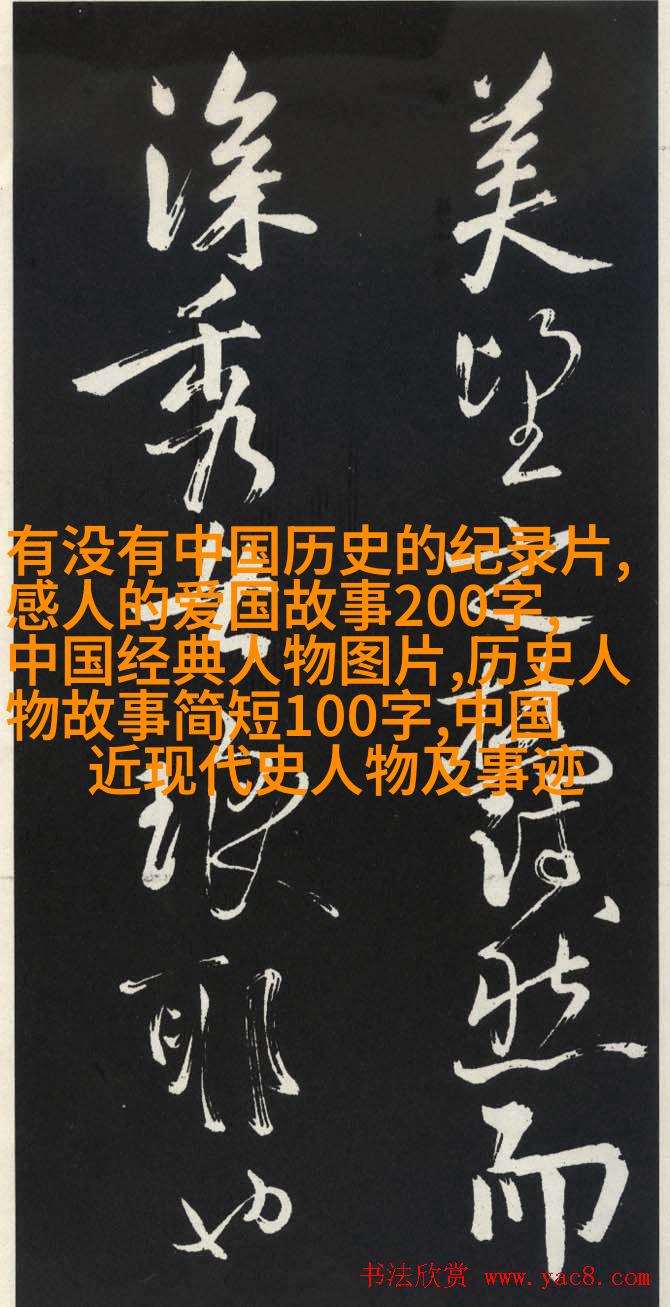 美望之蔚然而
深秀者琅耶也
有没有中国历史的纪录片,
感人的爱国故事200字,
中国经典人物图片,历史人
物故事简短100字,中国
近现代史人物及事迹
书法欣赏 www.yac8.com